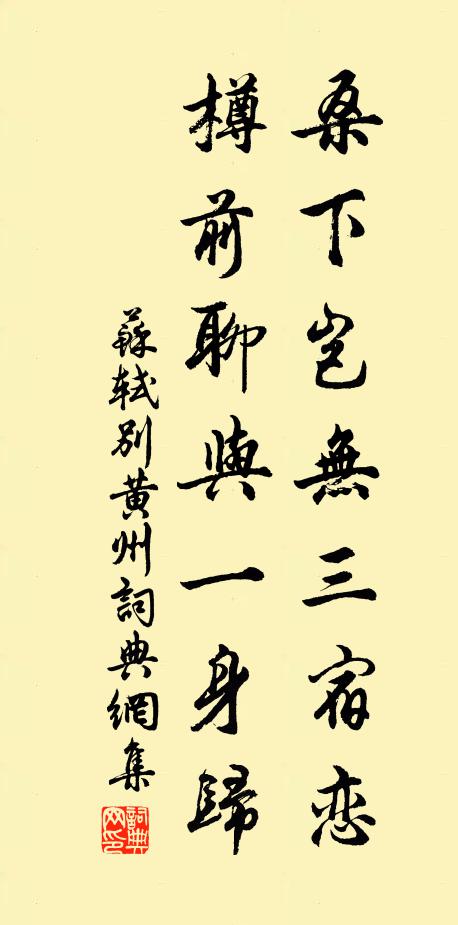 桑下豈無三宿戀
樽前聊與一身歸
蘇軾別黃州詞典網集
詞典網印